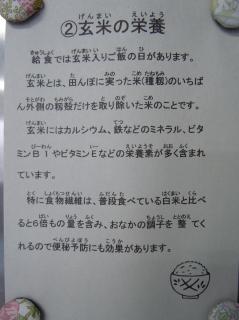 ②玄米の栄養
給食では玄米入りご飯の日があります。
玄米とは、田んぼに実った米(種籾)のいちば
ん外側の籾殻だけを取り除いた米のことです。
玄米にはカルシウム、鉄などのミネラル、ビタ
ミンB1やビタミンEなどの栄養素が多く含まれ
ています。
特に食物繊維は、普段食べている白米と比べ
ると6倍もの量を含み、おなかの調子を整てく
れるので便秘予防にも効果があります。